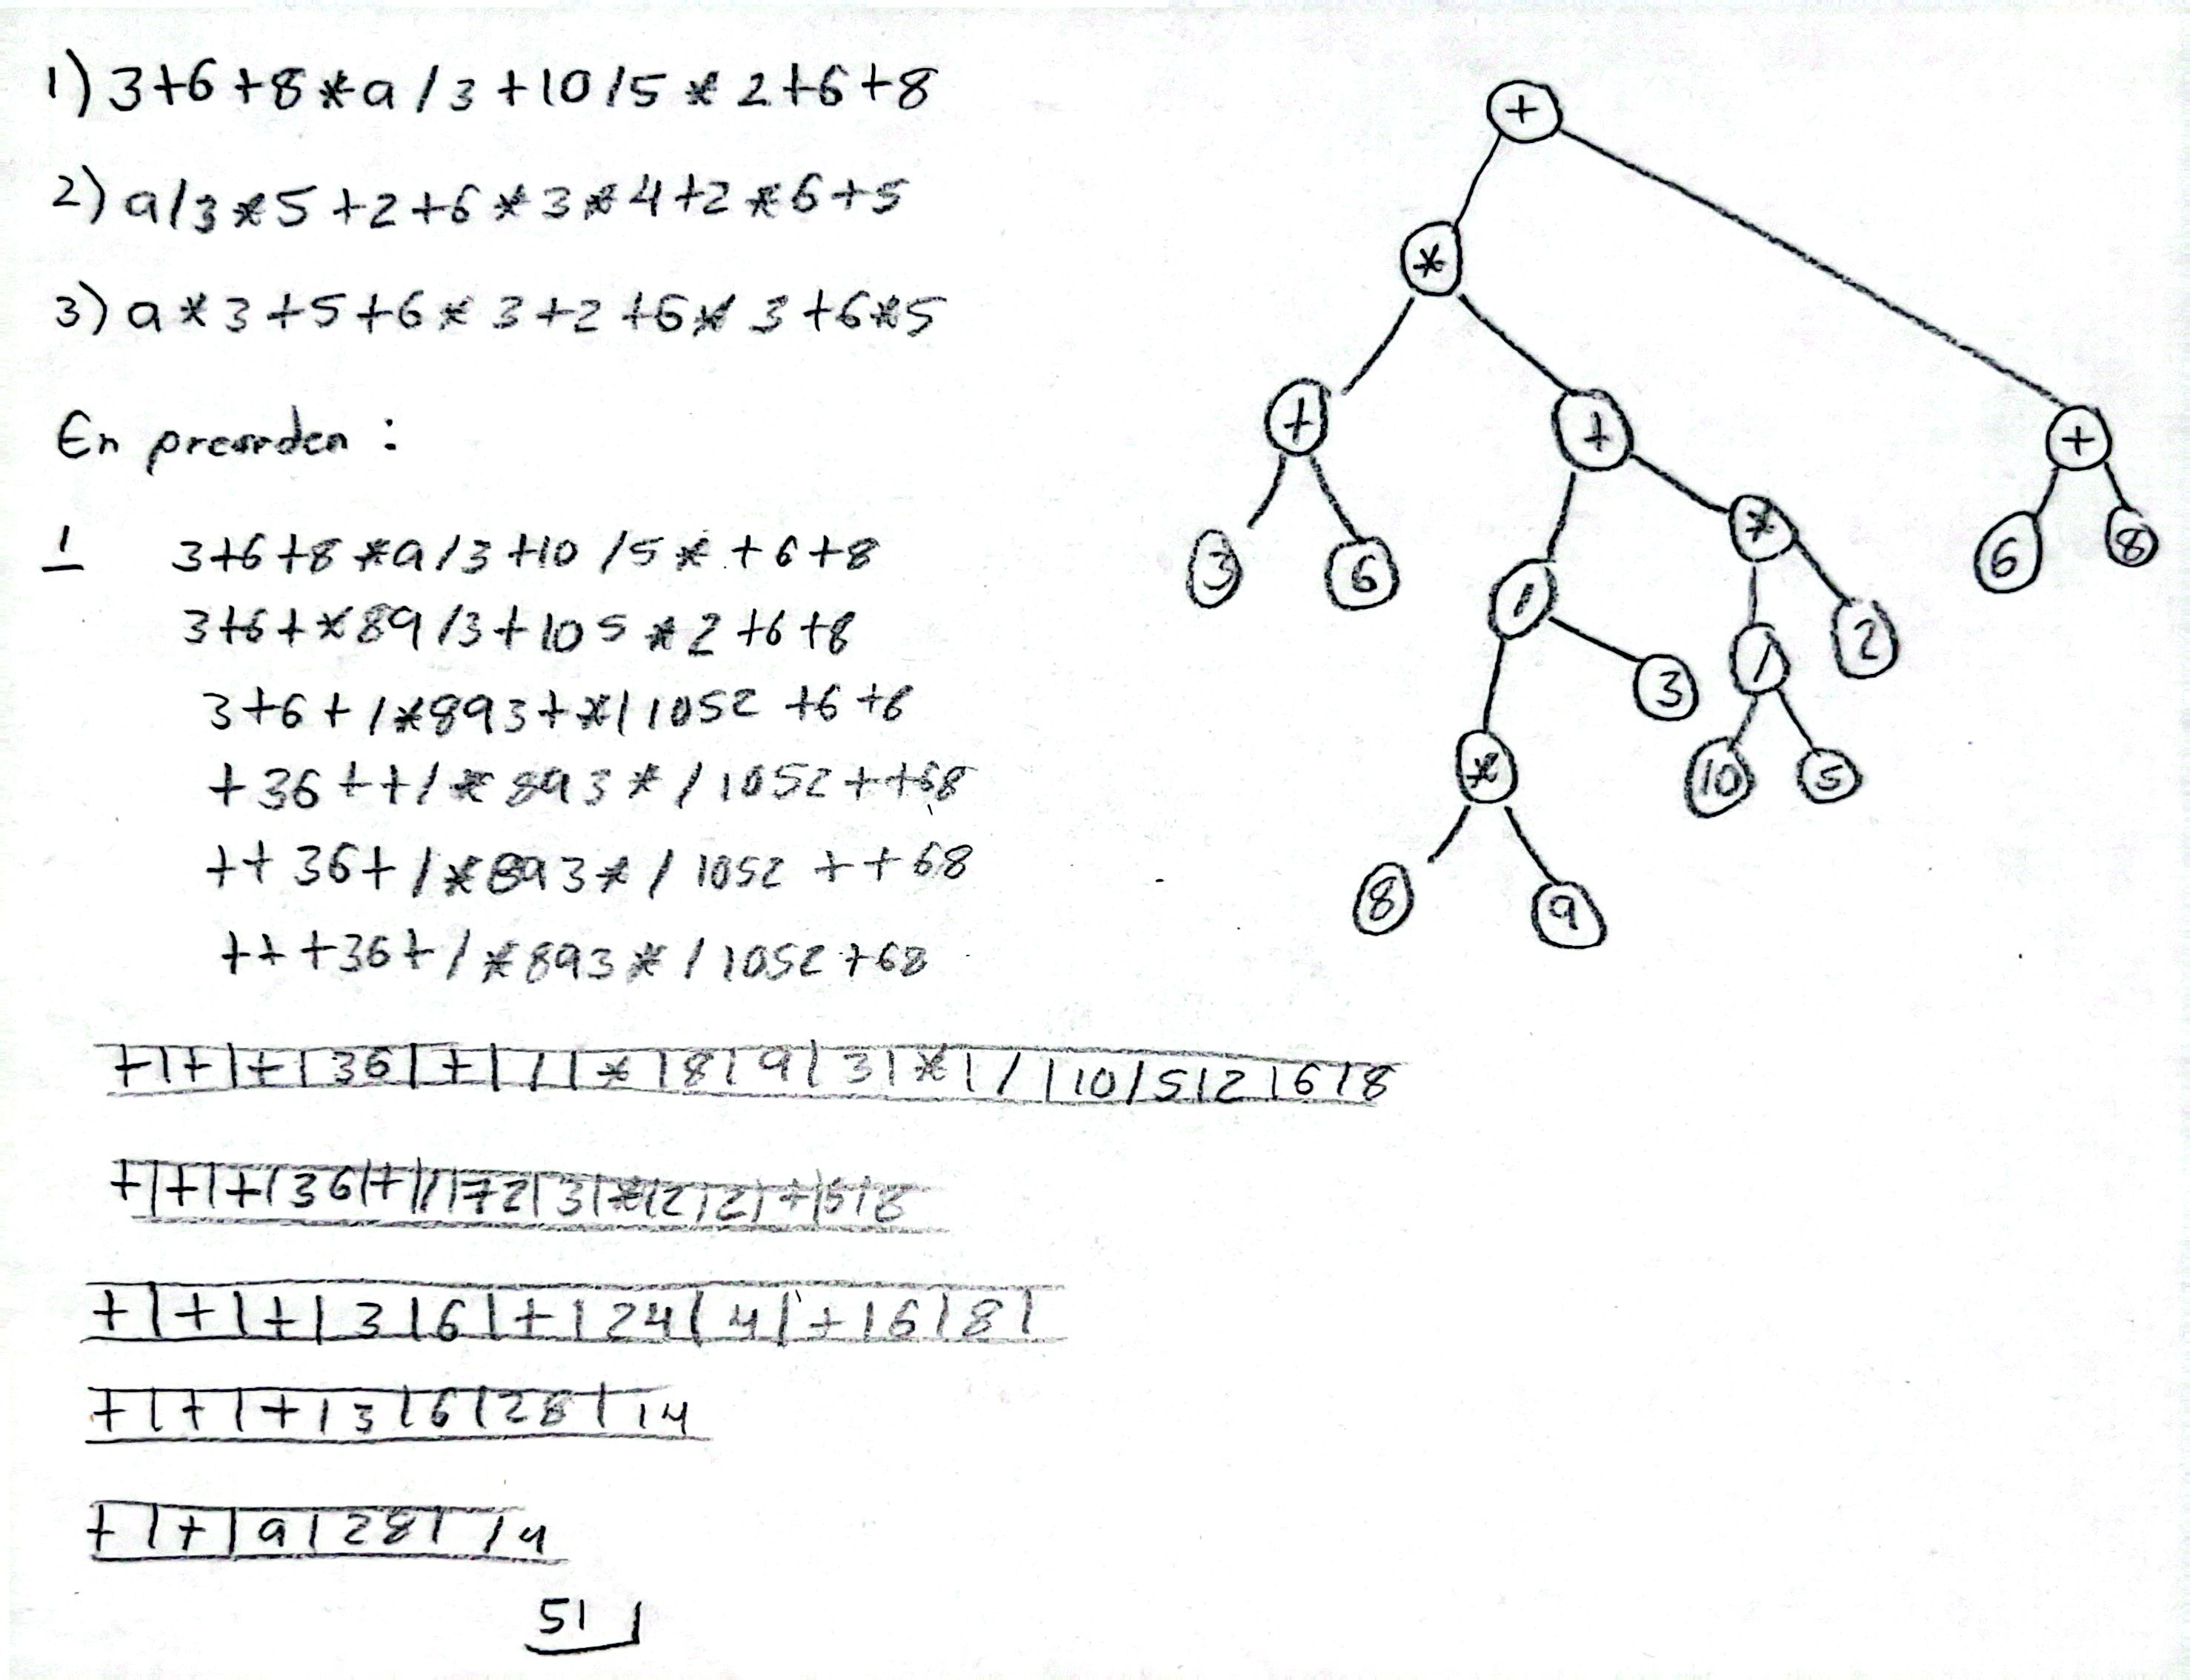 1) 3+6+8*9/3+10/5*2+6+8
2) 9/3*5+2+6*3*4+2*6+5
3) 9*3+5+6*3+2+6*3+6*5
En preorden :
1 3+6+8*9/3+10/5*+6+8
3+6+*89/3+105*2+6+8
3+6+/*893+*/1052+6+8
+36++/*893*/1052++68
++36+/*893*/1052++68
+++36+/*893*/1052+68
+|+|+|36|+|/|*|8|9|3|*|/|10|5|2|6|8
+|+|+|36|+|/|72|3|*|2|2|+|6|8
+|+|+|3|6|+|24|4|+|6|8|
+|+|+|3|6|28|14
+|+|9|28|14
51
+
*
+
+
+
3
6
/
*
6
8
3
/
2
*
10
5
8
9